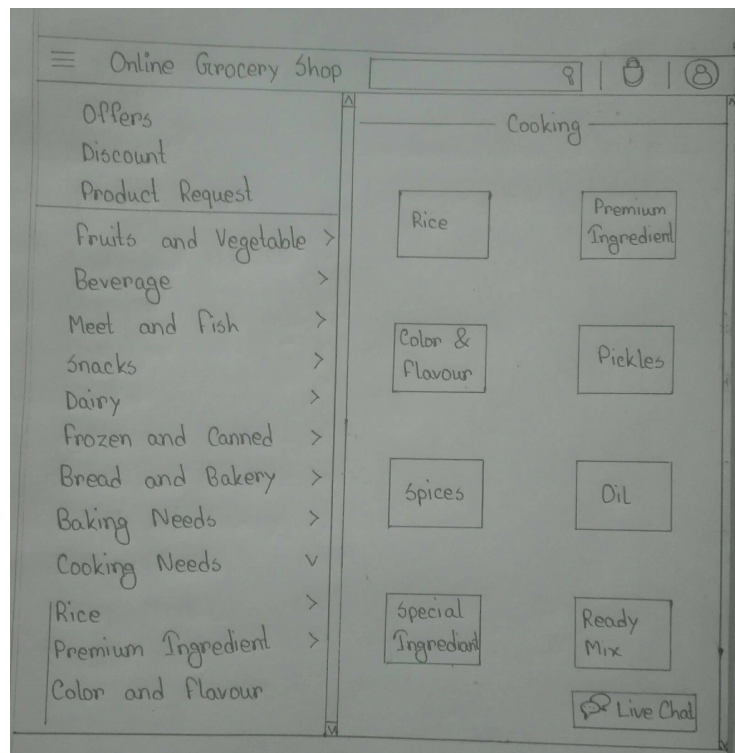 Online Grocery Shop
Offers
Discount
Product Request
Fruits and Vegetable >
Beverage >
Meet and Fish >
Snacks >
Dairy >
Frozen and Canned >
Bread and Bakery >
Baking Needs >
Cooking Needs v
Rice >
Premium Ingredient >
Color and Flavour
Cooking
Rice
Premium
Ingredient
Color &
Flavour
Pickles
Spices
Oil
Special
Ingrediant
Ready
Mix
Live Chat